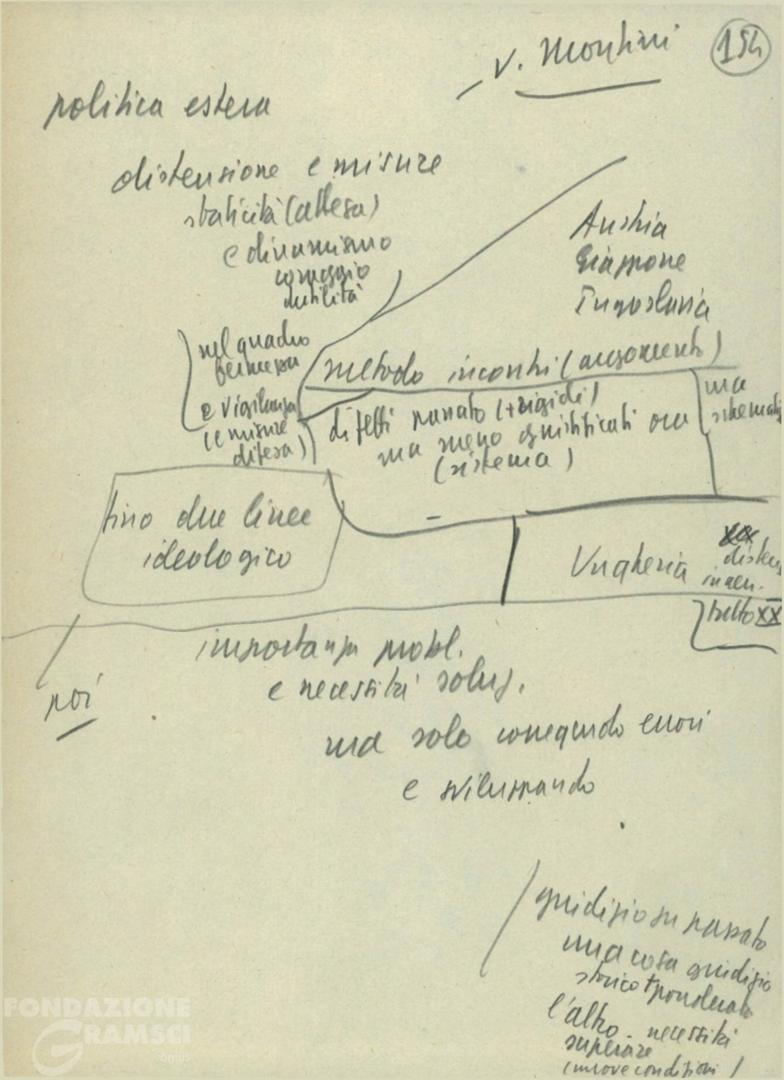 v. Montini
154
politica estera
distensione e misure
staticità (attesa)
e dinamismo
coraggio
duttilità
Austria
Giappone
Iugoslavia
nel quadro
fermezza
e vigilanza
(e misure
difesa)
metodo incontri (argomento)
difetti passato (+ rigidi)
ma meno giustificati ora
(sistema)
ma
tino due linee
ideologico
Ungheria
XX
poi
importanza probl.
e necessità soluz.
ma solo correggendo errori
e sviluppando
giudizio su passato
una cosa giudizio
storico + ponderato
l'altro - necessità
superare
(nuove condizioni)
FONDAZIONE
GRAMSCI
onlus